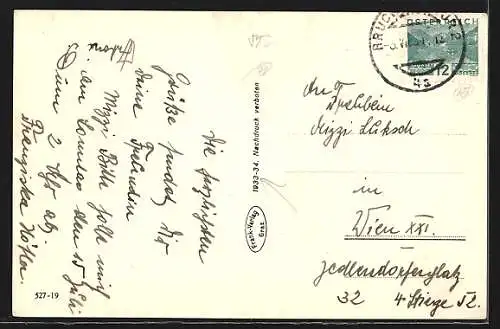 Die herzlichsten
Grüße sendet Dir
deine Freundin
Mizzi Bitte hole mich
am Sonntag den 15 Juli
um 2 Uhr ab.
Franziska
527-19
1933-34. Nachdruck verboten
Frank-Verlag
Graz
ÖSTERREICH
12
An
Fräulein
Mizzi Luksch
in
Wien XXI.
Jedlendorferplatz
32 4 Stiege